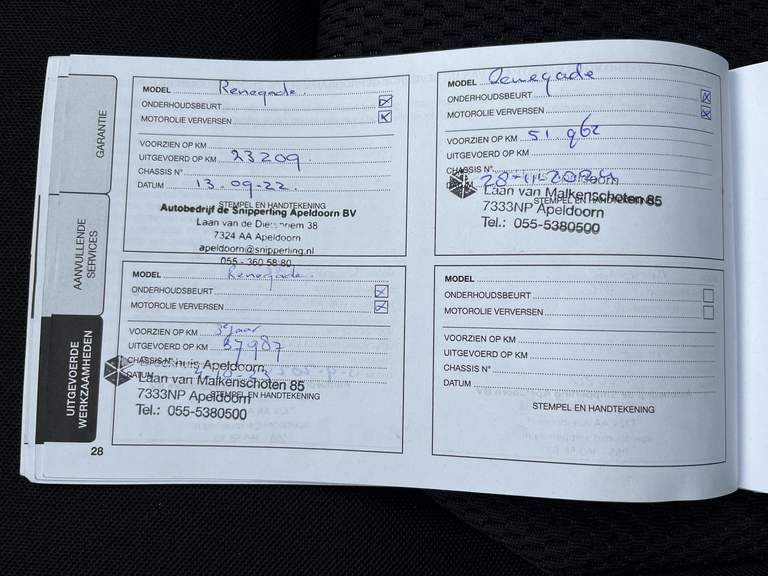 GARANTIE
AANVULLENDE
SERVICES
UITGEVOERDE
WERKZAAMHEDEN
28
MODEL Renegade
ONDERHOUDSBEURT
MOTOROLIE VERVERSEN
VOORZIEN OP KM
UITGEVOERD OP KM 23209
CHASSIS N°
DATUM 13-09-22
STEMPEL EN HANDTEKENING
Autobedrijf de Snipperling Apeldoorn BV
Laan van de Dierennem 38
7324 AA Apeldoorn
apeldoorn@snipperling.nl
055 - 360 58 80
MODEL Renegade
ONDERHOUDSBEURT
MOTOROLIE VERVERSEN
VOORZIEN OP KM 51.962
UITGEVOERD OP KM
CHASSIS N°
28-11-2024
Laan van Malkenschoten 85
STEMPEL EN HANDTEKENING
7333NP Apeldoorn
Tel.: 055-5380500
MODEL Renegade
ONDERHOUDSBEURT
MOTOROLIE VERVERSEN
VOORZIEN OP KM 3e jaar
UITGEVOERD OP KM 37987
CHASSIS N°
Apeldoorn
DATUM
Laan van Malkenschoten 85
STEMPEL EN HANDTEKENING
7333NP Apeldoorn
Tel.: 055-5380500
MODEL
ONDERHOUDSBEURT
MOTOROLIE VERVERSEN
VOORZIEN OP KM
UITGEVOERD OP KM
CHASSIS N°
DATUM
STEMPEL EN HANDTEKENING